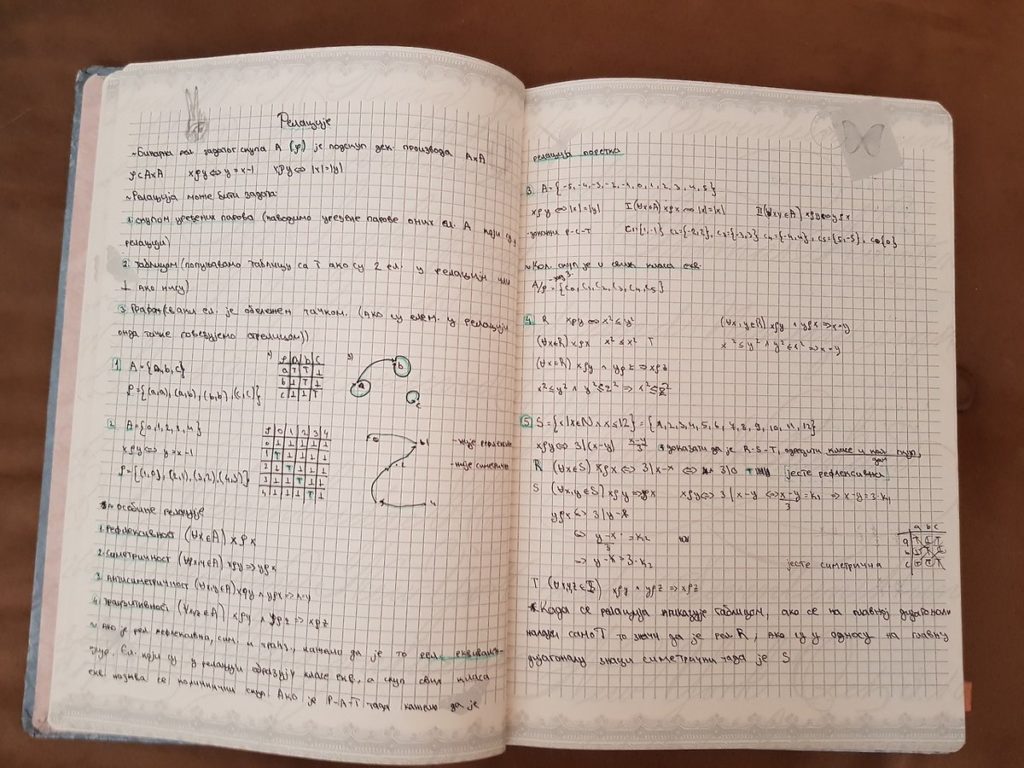 Релације
~Бинарна рел. задатог скупа A (ρ) је подскуп дек. производа A×A
ρ⊂A×A xρy⇔y=x-1 xρy⇔|x|=|y|
~Релација може бити задата:
1. скупом уређених парова (наводимо уређене парове оних ел. A који су у
релацији)
2. таблицом (попуњавамо таблицу са T ако су 2 ел. у релацији или
⊥ ако нису)
3. Графом (сваки ел. је обележен тачком. (ако су елем. у релацији
онда тачке повезујемо стрелицом))
1 A={a,b,c}
ρ={(a,a),(a,b),(b,b),(c,c)}
ρ a b c
a T T ⊥
b ⊥ T ⊥
c ⊥ ⊥ T
a b c
2. A={0,1,2,3,4}
xρy⇔y=x-1
ρ={(1,0),(2,1),(3,2),(4,3)}
ρ 0 1 2 3 4
0 ⊥ ⊥ ⊥ ⊥ ⊥
1 T ⊥ ⊥ ⊥ ⊥
2 ⊥ T ⊥ ⊥ ⊥
3 ⊥ ⊥ T ⊥ ⊥
4 ⊥ ⊥ ⊥ T ⊥
- није рефлексивна
- није симетрична
Особине релације
1. Рефлексивност (∀x∈A) xρx
2. Симетричност (∀x,y∈A) xρy⇒yρx
3. Антисиметричност (∀x,y∈A) xρy ∧ yρx⇒x=y
4. Транзитивност (∀x,y,z∈A) xρy ∧ yρz ⇒ xρz
~ Ако је рел. рефлексивна, сим. и транз., кажемо да је то рел. еквивален-
ције. Ел. који су у релацији образују класе екв., а скуп свих класа
екв назива се количнички скуп. Ако је Р-А-Т тада кажемо да је
релација поретка
3. A={-5,-4,-3,-2,-1,0,1,2,3,4,5}
xρy⇔|x|=|y| I (∀x∈A) xρx⇔|x|=|x| II (∀x,y∈A) xρy⇔yρx
Р-С-Т C1={1,-1} C2={-2,2}, C3={-3,3} C4={-4,4}, C5={5,-5}, C0{0}
~ Кол. скуп је и свих класа екв.
A/ρ={C0,C1,C2,C3,C4,C5}
4 R xρy⇔x²≤y² (∀x,y∈R) xρy ∧ yρx⇒x=y
(∀x∈R) xρx x²≤x² T x²≤y² ∧ y²≤x²⇔x=y
(∀x∈R) xρy ∧ yρz⇒xρz
x²≤y² ∧ y²≤z² ⇒ x²≤z²
5 S={x|x∈N ∧ x≤12}={1,2,3,4,5,6,7,8,9,10,11,12}
xρy⇔3|(x-y) x-y/3 доказати да је R-S-T, одредити класе и кол. скуп
R (∀x∈S) xρx⇔3|x-x⇔ 3|0 T јесте рефлексивна
S (∀x,y∈S) xρy⇒yρx xρy⇔3|x-y⇔x-y/3=k1⇒x-y=3·k1
yρx⇔3|y-x
⇔ y-x/3=k2
⇒ y-x=3·k2 јесте симетрична
T (∀x,y,z∈S) xρy ∧ yρz⇒xρz
Када се релација приказује таблицом, ако се на главној дијагонали
налази само T то значи да је рел R, ако су у односу на главну
дијагоналу знаци симетрични тада је S